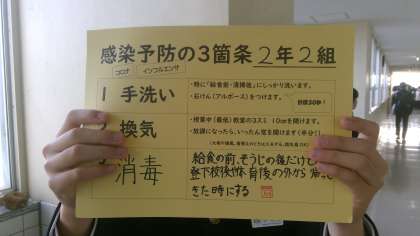 感染予防の3箇条 2年2組
コロナ インフルエンザ
1 手洗い
・特に「給食前・清掃後」にしっかり洗います。
・石けん(アルボース)をつけます。
目標30秒!
2 換気
・授業中(最低)教室の3スミ 10cmを開けます。
・放課になったら、いったん窓を開けます(半分!)
3 消毒
給食の前、そうじの後だけど
登下校後や体育後の外から帰って
きた時にする